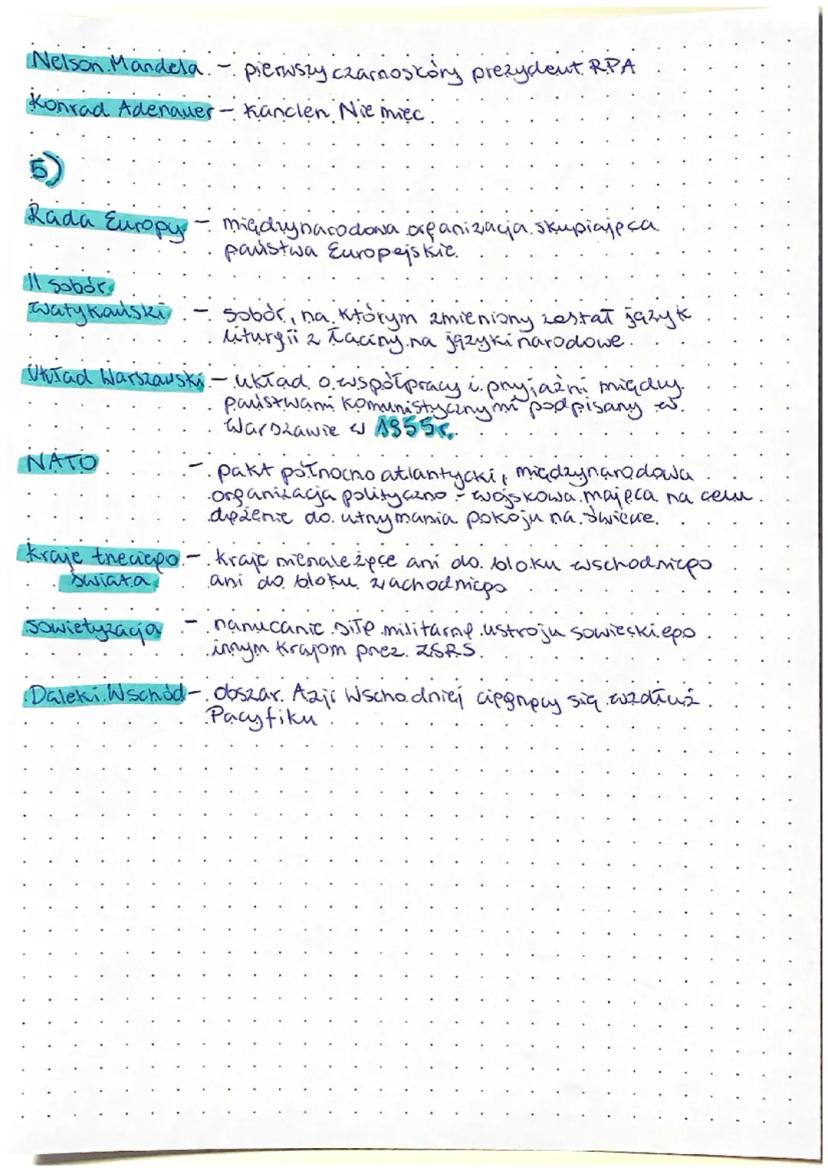 Nelson Mandela - pierwszy czarnoskóry prezydent RPA
Konrad Adenauer - kanclerz Niemiec
5)
Rada Europy - międzynarodowa organizacja skupiająca
państwa Europejskie.
II sobór
watykański - sobór, na którym zmieniony został język
liturgii z łaciny na języki narodowe.
Układ Warszawski - układ o współpracy i przyjaźni między
państwami komunistycznymi podpisany w
Warszawie w 1955r.
NATO - pakt północno atlantycki, międzynarodowa
organizacja polityczno - wojskowa mająca na celu
dążenie do utrzymania pokoju na świecie.
kraje trzeciego - kraje nienależące ani do bloku wschodniego
świata ani do bloku zachodniego
sowietyzacja - narzucanie siłą militarną ustroju sowieskiego
innym krajom przez ZSRS.
Daleki Wschód - obszar Azji Wschodniej ciągnący się wzdłuż
Pacyfiku